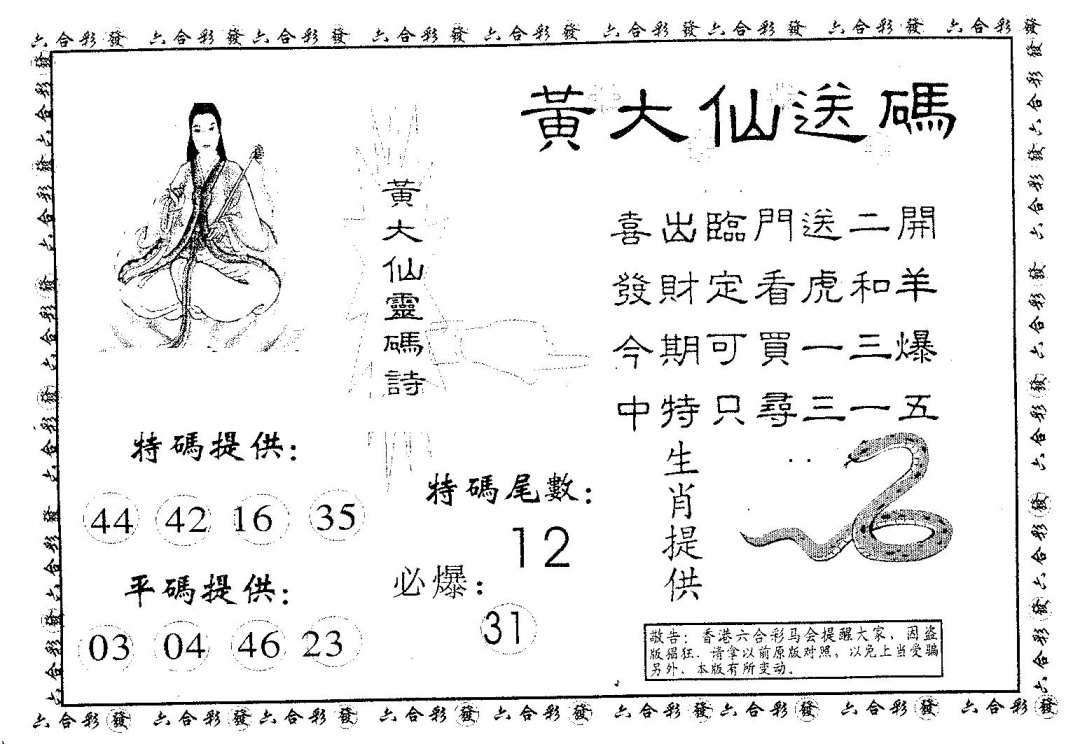 六合彩發 六合彩發六合彩發 六合彩發六合彩發 六合彩發六合彩發 六合彩發 六合彩發
黃大仙送碼
黃大仙靈碼詩
喜出臨門送二開
發財定看虎和羊
今期可買一三爆
中特只尋三一五
特碼提供：
44 42 16 35
平碼提供：
03 04 46 23
特碼尾數：
12
必爆：
31
生肖提供
敬告：香港六合彩马会提醒大家，因盗
版猖狂．请拿以前原版对照，以免上当受骗
另外．本版有所变动．
六合彩發 六合彩發六合彩發 六合彩發六合彩發 六合彩發六合彩發 六合彩發 六合彩發